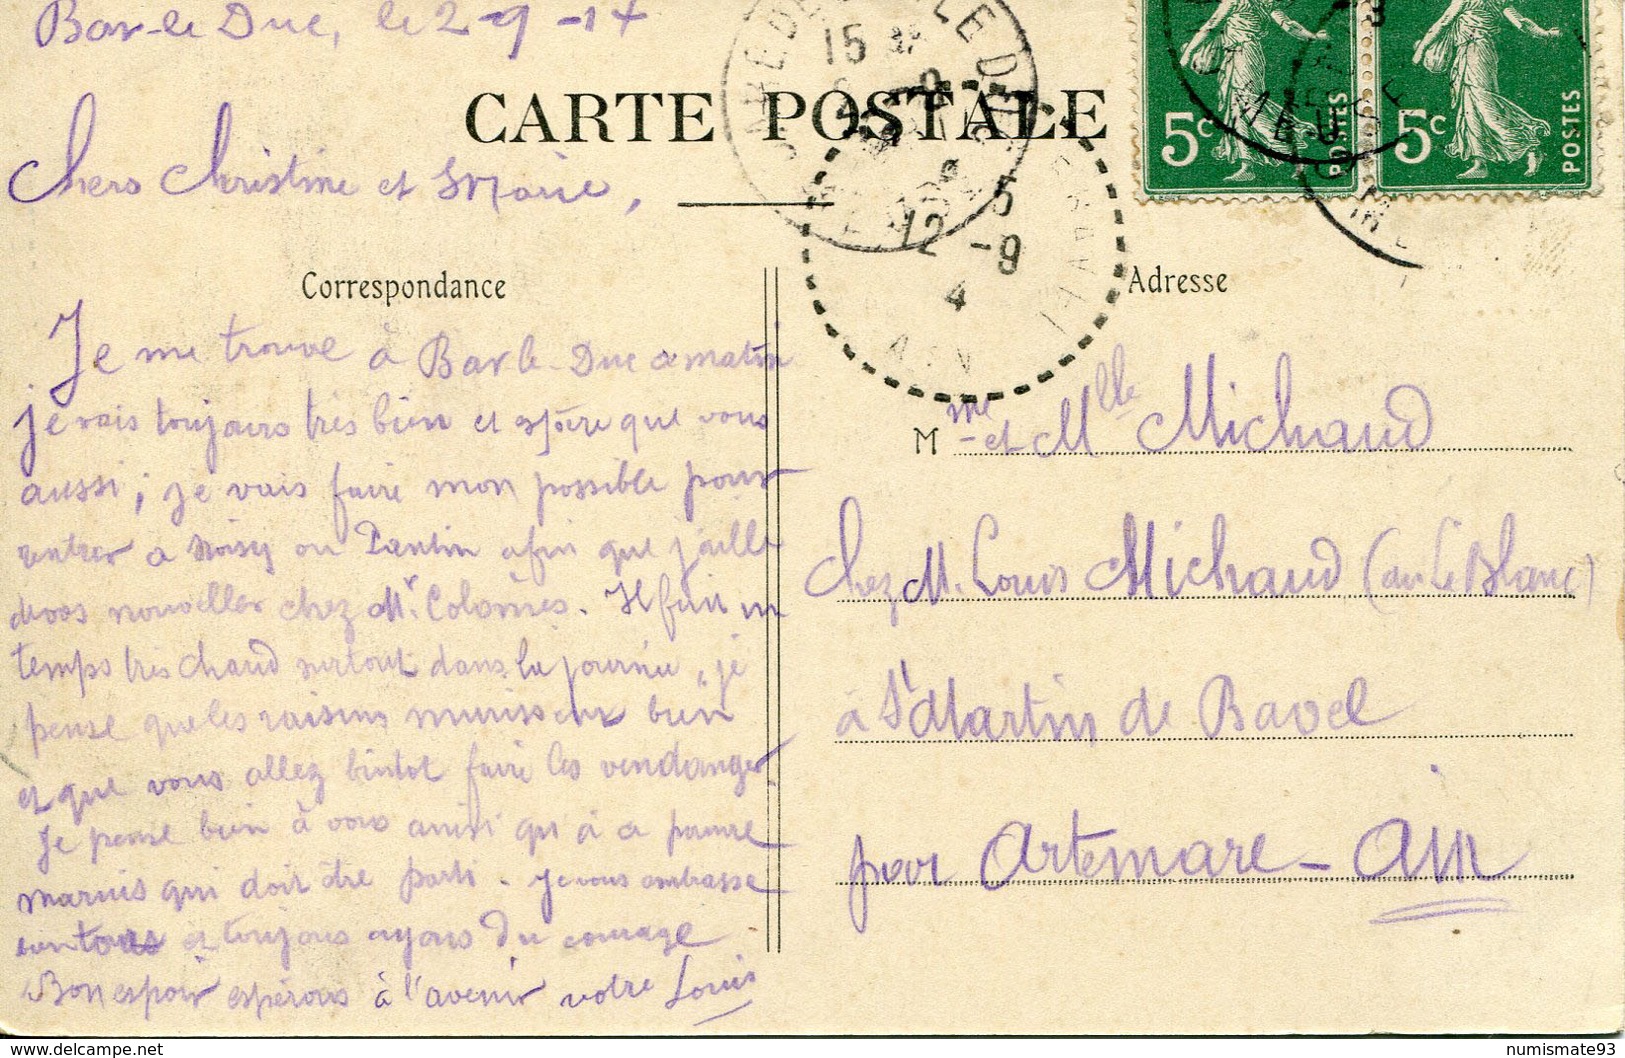 Bar-le Duc, le 2-9-14
CARTE POSTALE
Chers Christine et Marie,
Correspondance
Je me trouve à Bar le-Duc ce matin
je vais toujours très bien et espère que vous
aussi; je vais faire mon possible pour
rentrer a Noisy ou Pantin afin que j'aille
nouvelles chez Mr Colomès. Il fait un
temps très chaud surtout dans la journée, je
pense que les raisins murissent bien
et que vous allez bintot faire les vendanger.
Je pense bien à vous ainsi qu'à a pauvre
qui doit être parti. Je vous embrasse
et toujours ayons du courage
Bon espoir espérons à l'avenir votre Louis
Adresse
Mme et Mlle Michaud
chez M. Louis Michaud (au Le Blanc)
à St Martin de Bavel
par Artemare - Ain
5c POSTES
5c POSTES
15
12 -9
4
AIN
MEUSE
www.delcampe.net
numismate93